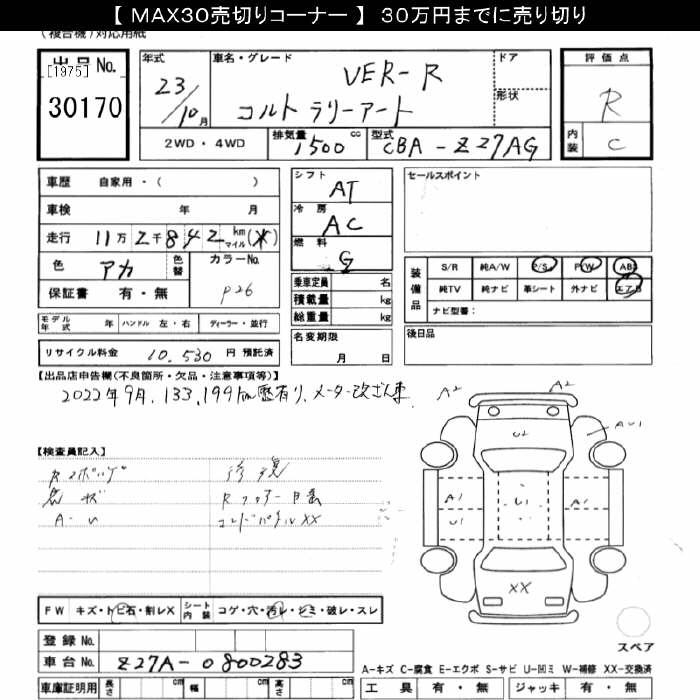 【 MAX30売切りコーナー 】 30万円までに売り切り
(複合機)対応用紙
出品 No.
[1975]
30170
年式
23/10月
車名・グレード
VER-R
コルト ラリーアート
ドア
形状
評価点
R
内装
C
2WD・4WD
排気量
1500 cc
型式
CBA - Z27AG
車歴 自家用・( )
車検 年 月
走行 11万 2千 8 4 2 km マイル (*)
色 アカ 色替
カラーNo.
P26
保証書 有・無
シフト
AT
冷房
AC
燃料
G
乗車定員 名
積載量 kg
総重量 kg
セールスポイント
装備品
S/R 純A/W P/S P/W ABS
純TV 純ナビ 革シート 外ナビ エアB
ナビ型番:
モデル年式 年 ハンドル 左・右 ディーラー・並行
リサイクル料金 10,530 円 預託済
名変期限
月 日
後日品
【出品店申告欄(不良箇所・欠品・注意事項等)】
2022年9月、133,199km歴有り、メーター改ざん車
【検査員記入】
修復
A-U
XX
A2
A2
U2
AU1
A1
U1
U1
A1
XX
スペア
FW キズ・トビ石・割レX シート内装 コゲ・穴・汚レ・シミ・破レ・スレ
登録 No.
車台 No. Z27A-0800283
車庫証明用 長さ cm 幅 cm 高さ cm
A-キズ C-腐食 E-エクボ S-サビ U-凹ミ W-補修 XX-交換済
工具 有・無 ジャッキ 有・無